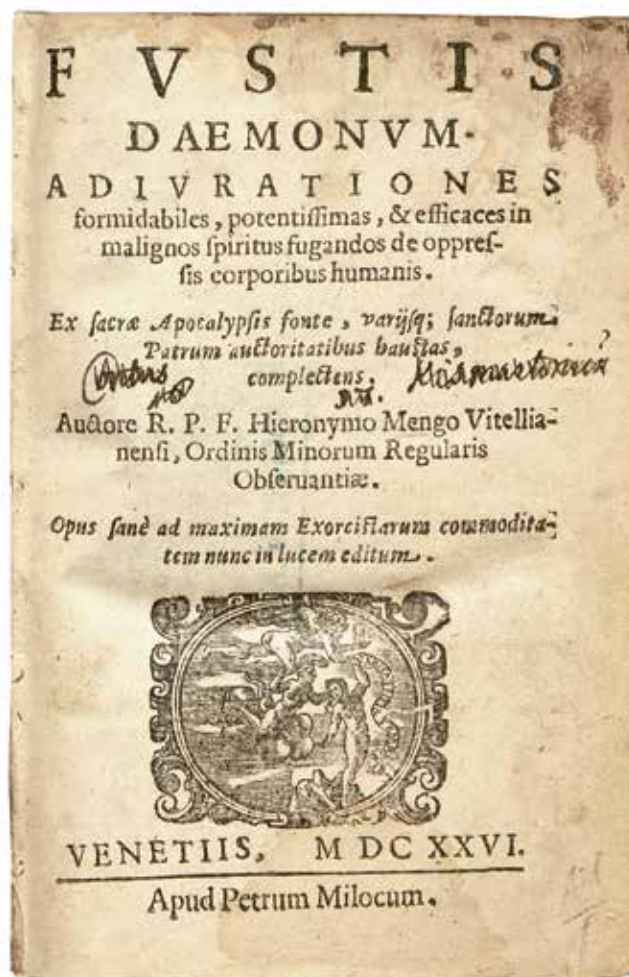 FVSTIS
DAEMONVM.
ADIVRATIONES
formidabiles, potentiſſimas, & efficaces in
malignos ſpiritus fugandos de oppreſ-
ſis corporibus humanis.
Ex ſacræ Apocalypſis fonte, varijſq; ſanctorum
Patrum auctoritatibus hauſtas,
complectens.
Auctore R. P. F. Hieronymo Mengo Vitellia-
nenſi, Ordinis Minorum Regularis
Obſeruantiæ.
Opus ſanè ad maximam Exorciſtarum commodita-
tem nunc in lucem editum.
VENETIIS, M DC XXVI.
Apud Petrum Milocum.